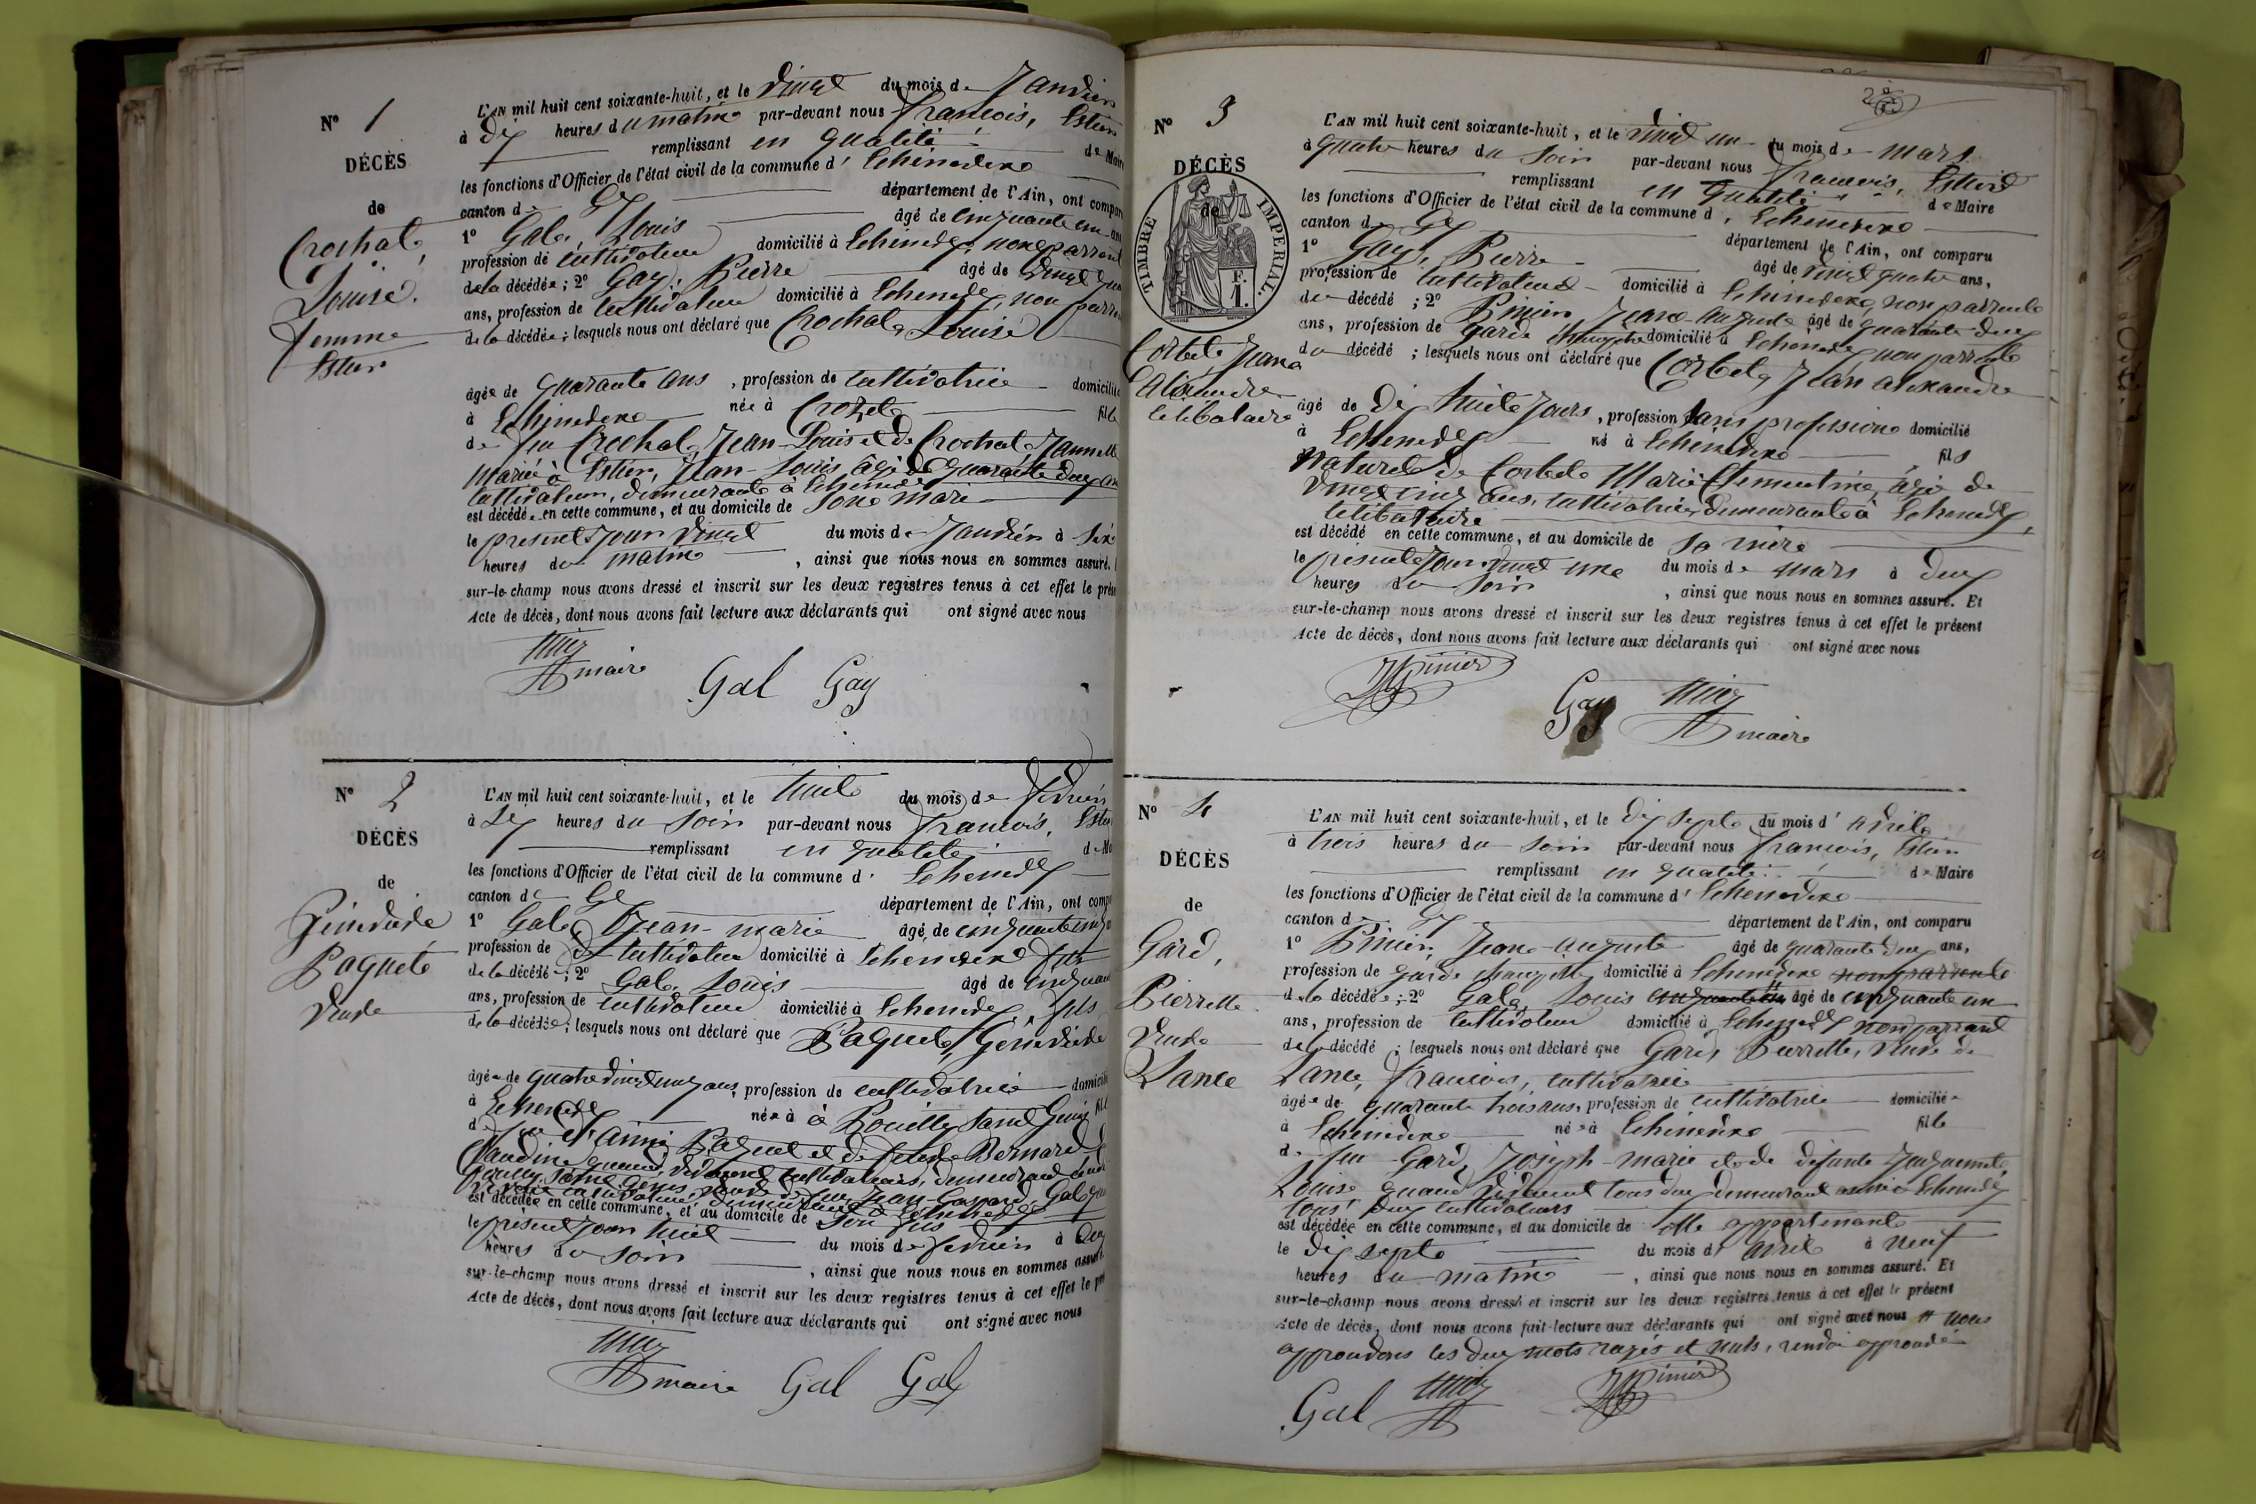 N° 1
DÉCÈS
de
Crochat,
Louise.
femme
Estier
L'AN mil huit cent soixante-huit, et le vingt du mois de Janvier
à dix heures du matin par-devant nous François, Estier
remplissant en qualité de Maire
les fonctions d'Officier de l'état civil de la commune d' Echenevex
canton de Gex département de l'Ain, ont compar
1° Gal, Louis âgé de cinquante un ans
profession de cultivateur domicilié à Echenevex, non parrent
de la décédée ; 2° Gay, Pierre âgé de vingt
ans, profession de cultivateur domicilié à Echenevex, non parrent
de la décédée ; lesquels nous ont déclaré que Crochat, Louise
âgée de quarante ans, profession de cultivatrice domiciliée
à Echenevex née à Crozet fille
de feu Crochat, Jean-Louis et de Crochat, Jannette
Mariée à Estier, Jean-Louis, âgé de quarante deux ans
cultivateur, demeurant à Echenevex
est décédée en cette commune, et au domicile de Son mari
le présent jour vingt du mois de Janvier à Six
heures du matin, ainsi que nous nous en sommes assuré.
sur-le-champ nous avons dressé et inscrit sur les deux registres tenus à cet effet le prése
Acte de décès, dont nous avons fait lecture aux déclarants qui ont signé avec nous
maire Gal Gay
N° 2
DÉCÈS
de
Genevieve
Paquet
veuve
L'AN mil huit cent soixante-huit, et le huit du mois de février
à Six heures du Soir par-devant nous François, Estier
remplissant en qualité de Ma
les fonctions d'Officier de l'état civil de la commune d' Echenevex
canton de Gex département de l'Ain, ont comp
1° Gal, Jean-marie âgé de cinquante
profession de cultivateur domicilié à Echenevex fils
de la décédée ; 2° Gal, Louis âgé de cinquante
ans, profession de cultivateur domicilié à Echenevex, fils
de la décédée ; lesquels nous ont déclaré que Paquet, Genevieve
âgée de quatre vingt ans, profession de cultivatrice domicilié
à Echenevex née à à Pouilly Saint Genis fille
de feu Aimé Paquet et de feue Bernard
Claudine quand vivaient cultivateurs, demeurant à
Pouilly Saint Genis, veuve de feu Jean-Gaspard, Gal
est décédée en cette commune, et au domicile de Son fils
le présent jour huit du mois de février à deux
heures du soir, ainsi que nous nous en sommes assuré
sur-le-champ nous avons dressé et inscrit sur les deux registres tenus à cet effet le pré
Acte de décès, dont nous avons fait lecture aux déclarants qui ont signé avec nous
maire Gal Gal
N° 3
DÉCÈS
de
TIMBRE IMPERIAL.
F.
1.
Corbet, Jean
Alexandre
celibataire
L'AN mil huit cent soixante-huit, et le vingt un du mois de mars
à quatre heures du soir par-devant nous François, Estier
remplissant en qualité de Maire
les fonctions d'Officier de l'état civil de la commune d' Echenevex
canton de Gex département de l'Ain, ont comparu
1° Gay, Pierre âgé de vingt quatre ans,
profession de cultivateur domicilié à Echenevex, non parrent
du décédé ; 2° Pinier, Jean auguste âgé de quarante deux
ans, profession de garde champetre domicilié à Echenevex non parrent
du décédé ; lesquels nous ont déclaré que Corbet, Jean alexandre
âgé de dix huit Jours, profession Sans profession domicilié
à Echenevex né à Echenevex fils
naturel de Corbet Marie Clementine, âgée de
vingt cinq ans, cultivatrice, demeurante à Echenevex,
celibataire
est décédé en cette commune, et au domicile de sa mère
le présent Jour vingt un du mois de mars à deux
heures du soir, ainsi que nous nous en sommes assuré. Et
sur-le-champ nous avons dressé et inscrit sur les deux registres tenus à cet effet le présent
Acte de décès, dont nous avons fait lecture aux déclarants qui ont signé avec nous
Pinier
Gay
maire
N° 4
DÉCÈS
de
Gard,
Pierrette
veuve
Lance
L'AN mil huit cent soixante-huit, et le dix sept du mois d' avril
à trois heures du soir par-devant nous François, Estier
remplissant en qualité de Maire
les fonctions d'Officier de l'état civil de la commune d' Echenevex
canton de Gex département de l'Ain, ont comparu
1° Pinier, Jean-auguste âgé de quarante deux ans,
profession de garde champetre domicilié à Echenevex non parrent
de la décédée ; 2° Gal, Louis cinquante un âgé de cinquante un
ans, profession de cultivateur domicilié à Echenevex non parrent
de la décédé ; lesquels nous ont déclaré que Gard, Pierrette, veuve de
Lance, François, cultivatrice
âgée de quarante trois ans, profession de cultivatrice domiciliée
à Echenevex née à Echenevex fille
de feu Gard, Joseph-marie et de defunte
Louise quand vivaient tous deux demeurant à Echenevex
tous deux cultivateurs
est décédée en cette commune, et au domicile de elle appartenant
le dix sept du mois d' avril à neuf
heures du matin, ainsi que nous nous en sommes assuré. Et
sur-le-champ nous avons dressé et inscrit sur les deux registres tenus à cet effet le présent
Acte de décès, dont nous avons fait lecture aux déclarants qui ont signé avec nous # nous
approuvons les deux mots rayés et nuls, renvoi approuvé
Gal Pinier